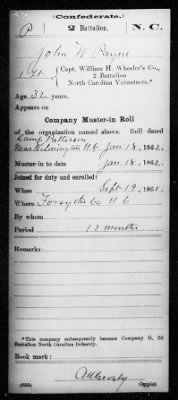 (Confederate.)
P 2 Battalion. N. C.
John W Payne
Capt. William H. Wheeler's Co.,
2 Battalion
North Carolina Volunteers.*
Age 32 years.
Appears on
Company Muster-in Roll
of the organization named above. Roll dated
Camp Patterson
Near Wilmington N C Jan 18, 1862.
Muster-in to date Jan 18, 1862.
Joined for duty and enrolled:
When Sept 19, 1861.
Where Forsythe Co N C
By whom
Period 12 months
Remarks:
*This company subsequently became Company G, 2d
Battalion North Carolina Infantry.
Book mark:
(635)
Copyist